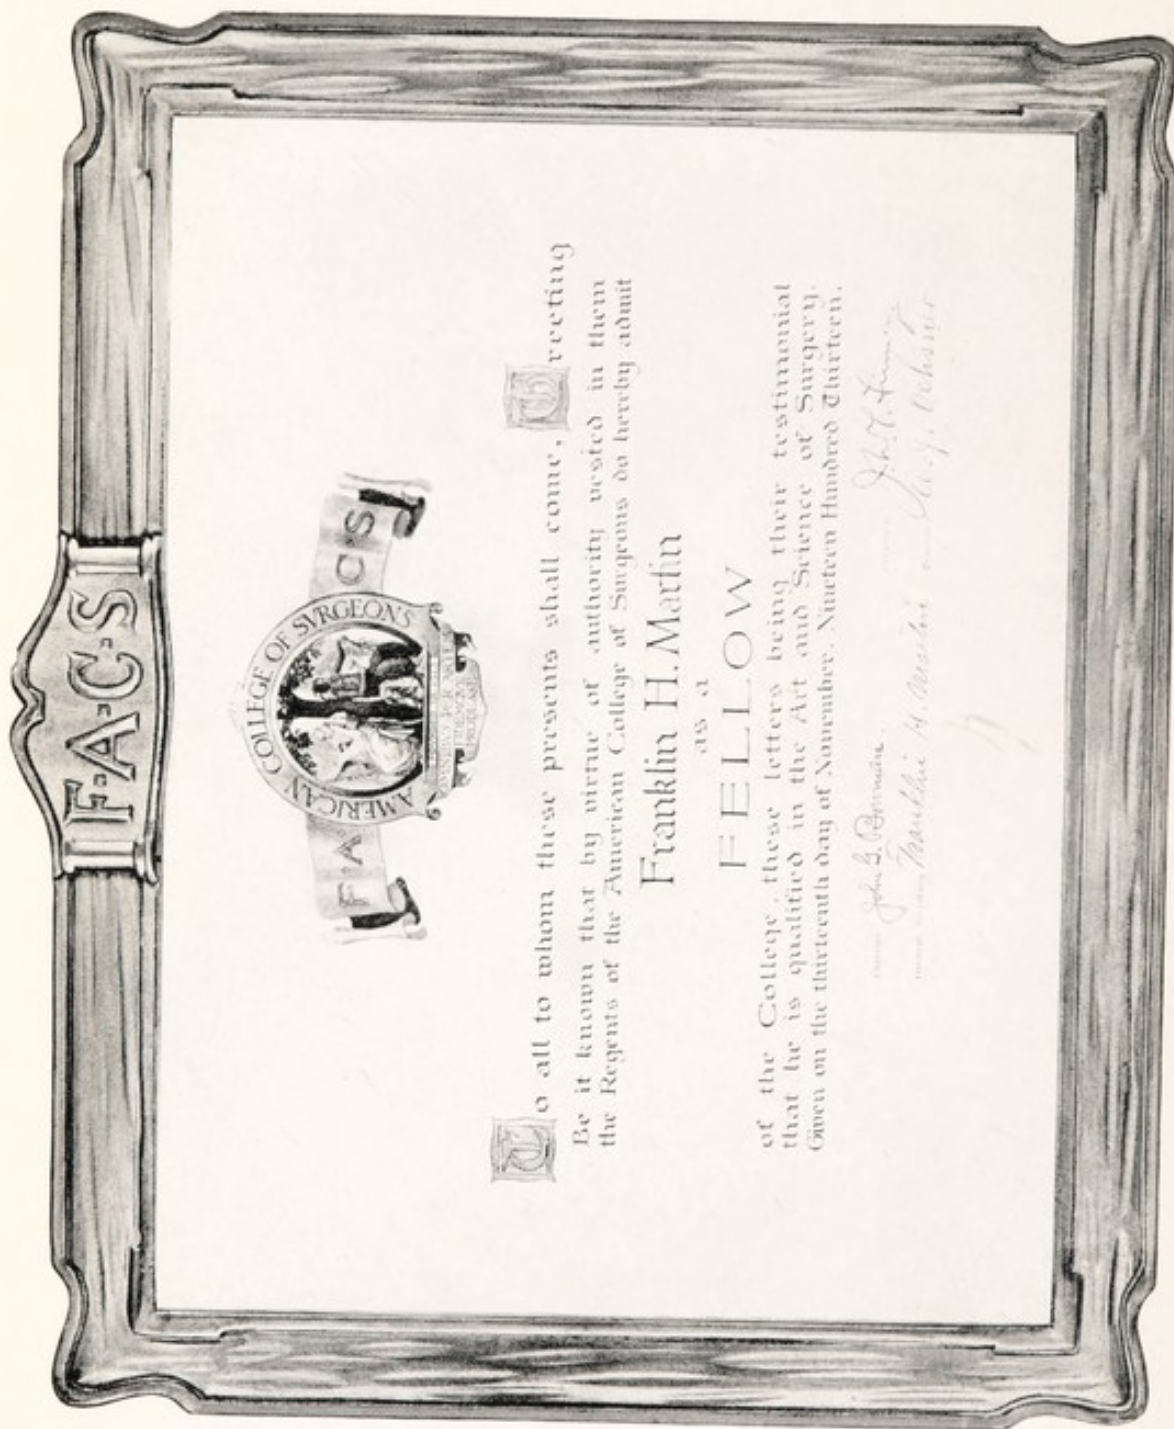 F·A·C·S
AMERICAN COLLEGE OF SVRGEONS
F·A· C·S
To all to whom these presents shall come, Greeting
Be it known that by virtue of authority vested in them
the Regents of the American College of Surgeons do hereby admit
Franklin H. Martin
as a
FELLOW
of the College, these letters being their testimonial
that he is qualified in the Art and Science of Surgery.
Given on the thirteenth day of November, Nineteen Hundred Thirteen.
John G. Bowman.
Franklin H. Martin